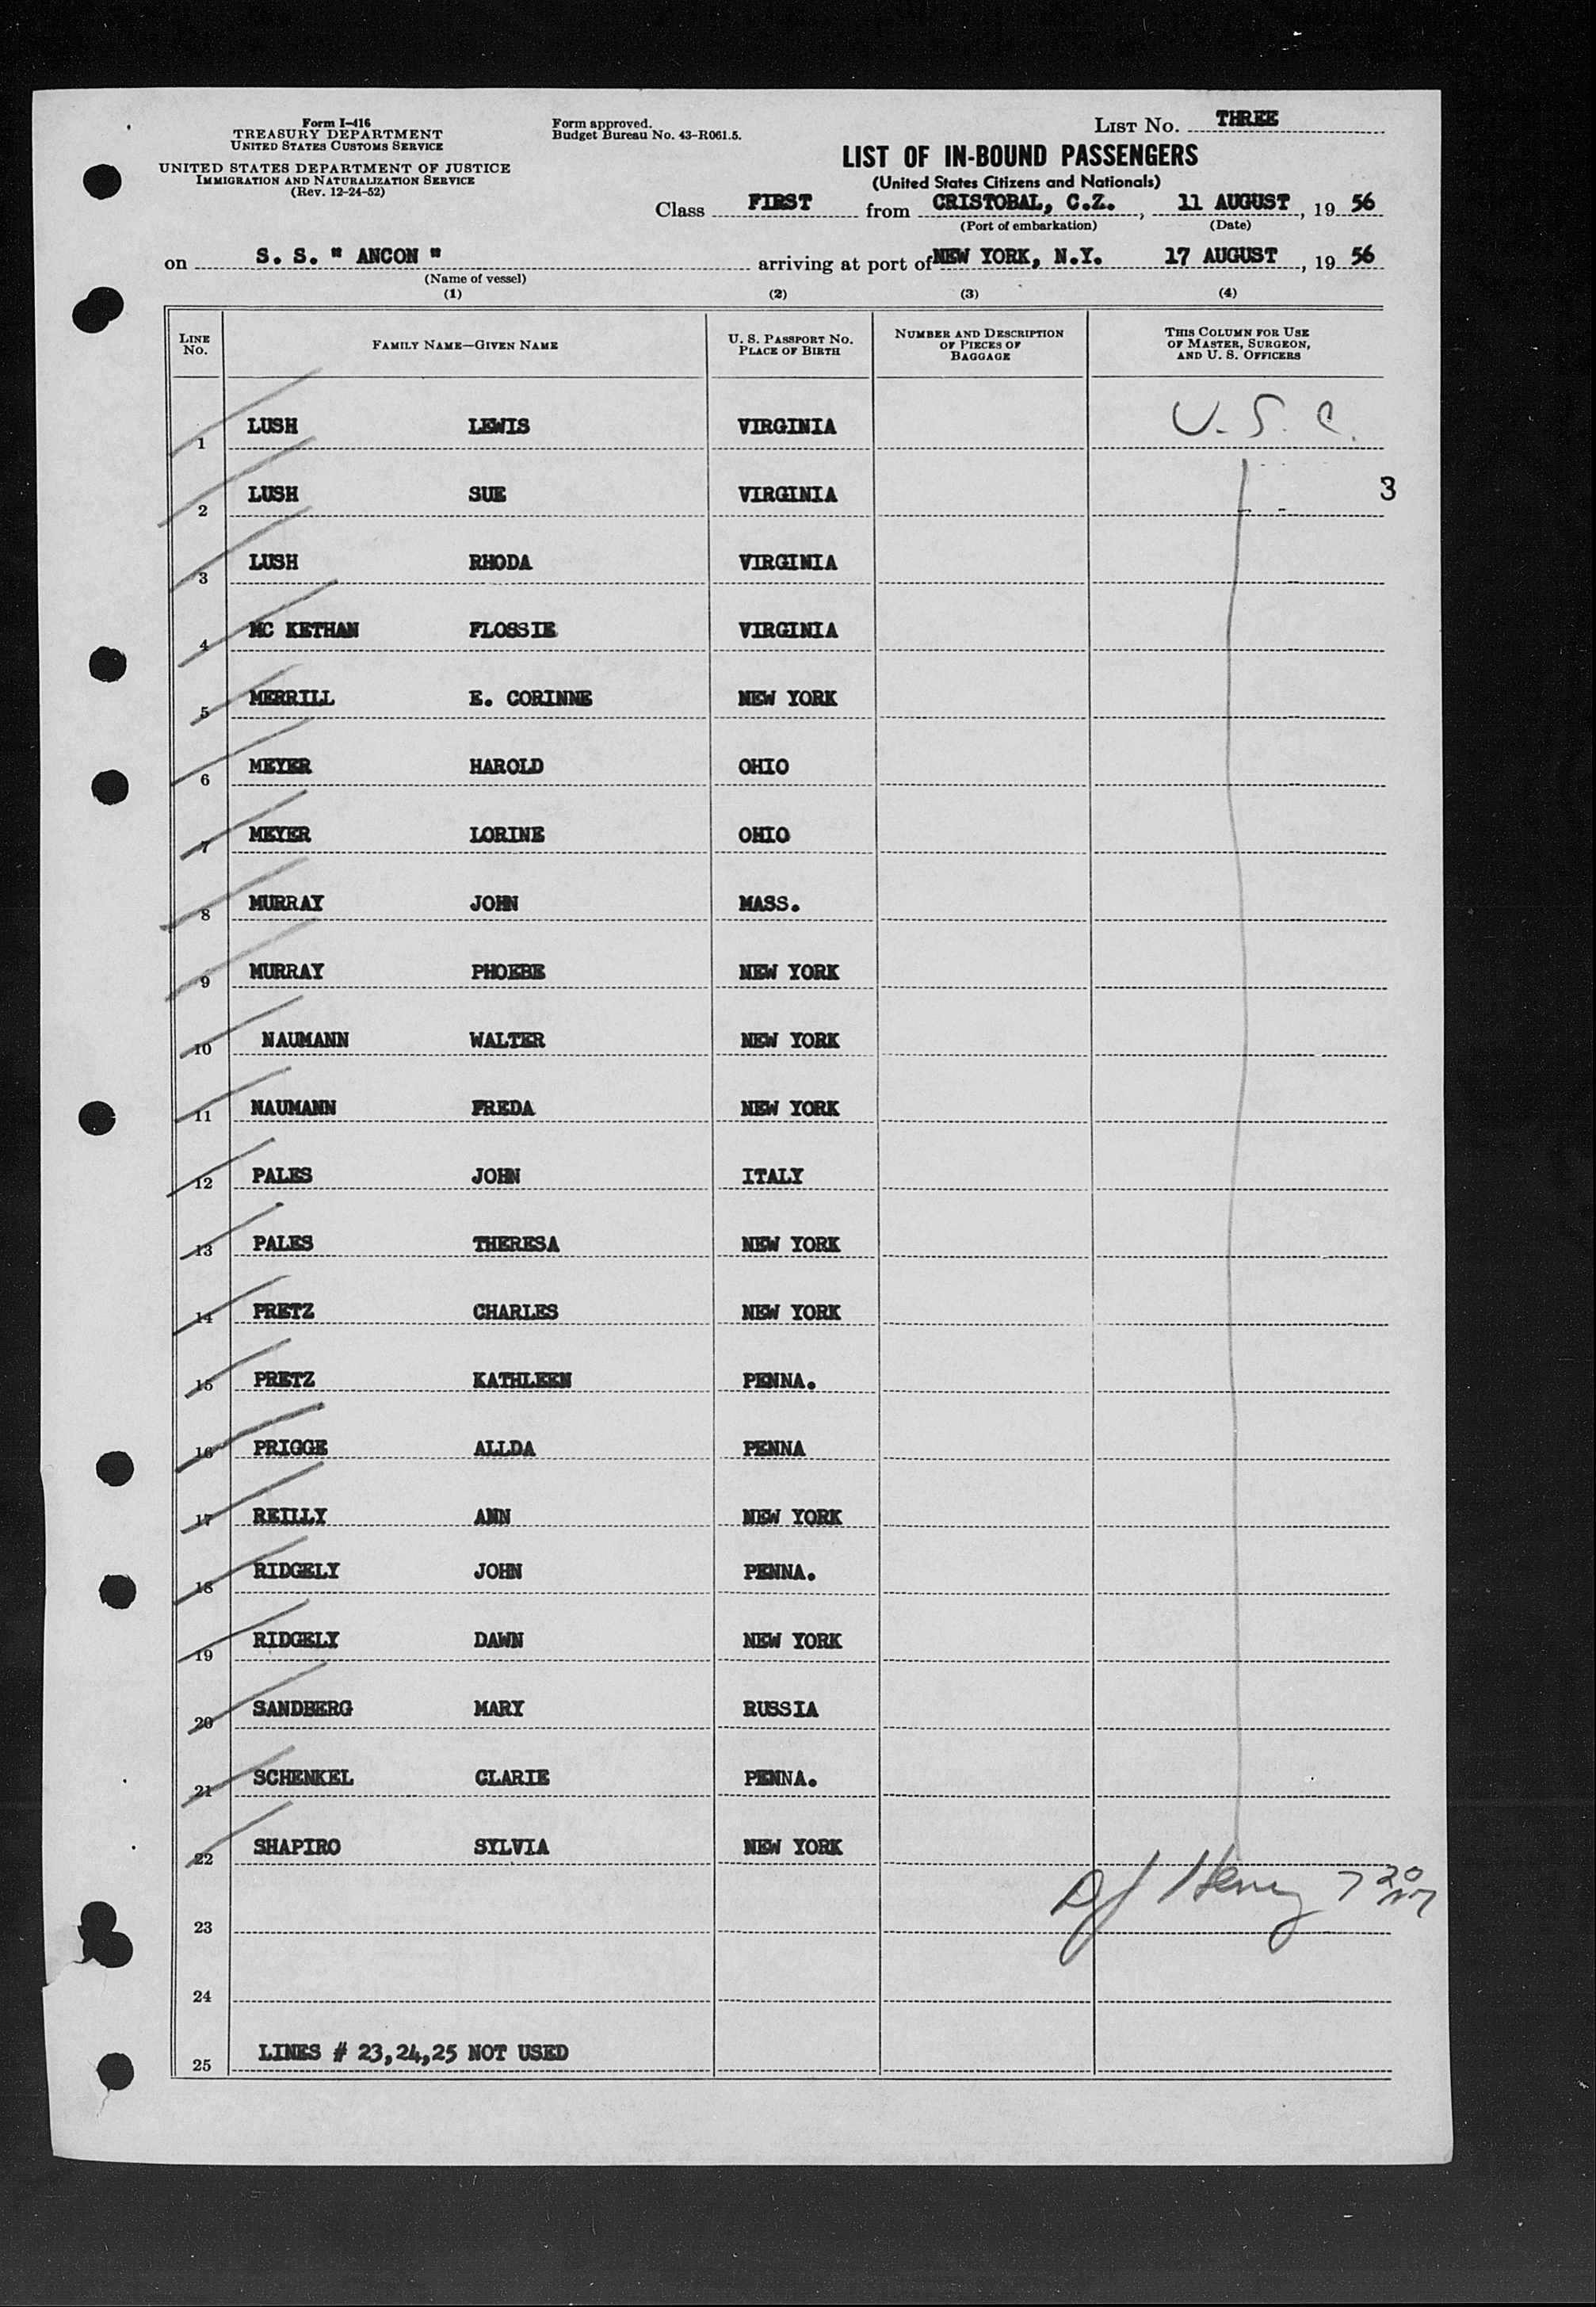 Form I-416
TREASURY DEPARTMENT
UNITED STATES CUSTOMS SERVICE
UNITED STATES DEPARTMENT OF JUSTICE
IMMIGRATION AND NATURALIZATION SERVICE
(Rev. 12-24-52)
Form approved.
Budget Bureau No. 43-R061.5.
LIST NO. THREE
LIST OF IN-BOUND PASSENGERS
(United States Citizens and Nationals)
Class FIRST from CRISTOBAL, C.Z., 11 AUGUST, 19 56
(Port of embarkation) (Date)
on S. S. " ANCON " arriving at port of NEW YORK, N.Y. 17 AUGUST, 19 56
(Name of vessel)
(1) (2) (3) (4)
LINE NO. FAMILY NAME—GIVEN NAME U. S. PASSPORT NO. PLACE OF BIRTH NUMBER AND DESCRIPTION OF PIECES OF BAGGAGE THIS COLUMN FOR USE OF MASTER, SURGEON, AND U. S. OFFICERS
1 LUSH LEWIS VIRGINIA U. S. C.
2 LUSH SUE VIRGINIA 3
3 LUSH RHODA VIRGINIA
4 MC KETHAN FLOSSIE VIRGINIA
5 MERRILL E. CORINNE NEW YORK
6 MEYER HAROLD OHIO
7 MEYER LORINE OHIO
8 MURRAY JOHN MASS.
9 MURRAY PHOEBE NEW YORK
10 NAUMANN WALTER NEW YORK
11 NAUMANN FREDA NEW YORK
12 PALES JOHN ITALY
13 PALES THERESA NEW YORK
14 PRETZ CHARLES NEW YORK
15 PRETZ KATHLEEN PENNA.
16 PRIGGE ALLDA PENNA
17 REILLY ANN NEW YORK
18 RIDGELY JOHN PENNA.
19 RIDGELY DAWN NEW YORK
20 SANDBERG MARY RUSSIA
21 SCHENKEL CLARIE PENNA.
22 SHAPIRO SYLVIA NEW YORK
Henry
23
24
25 LINES # 23,24,25 NOT USED